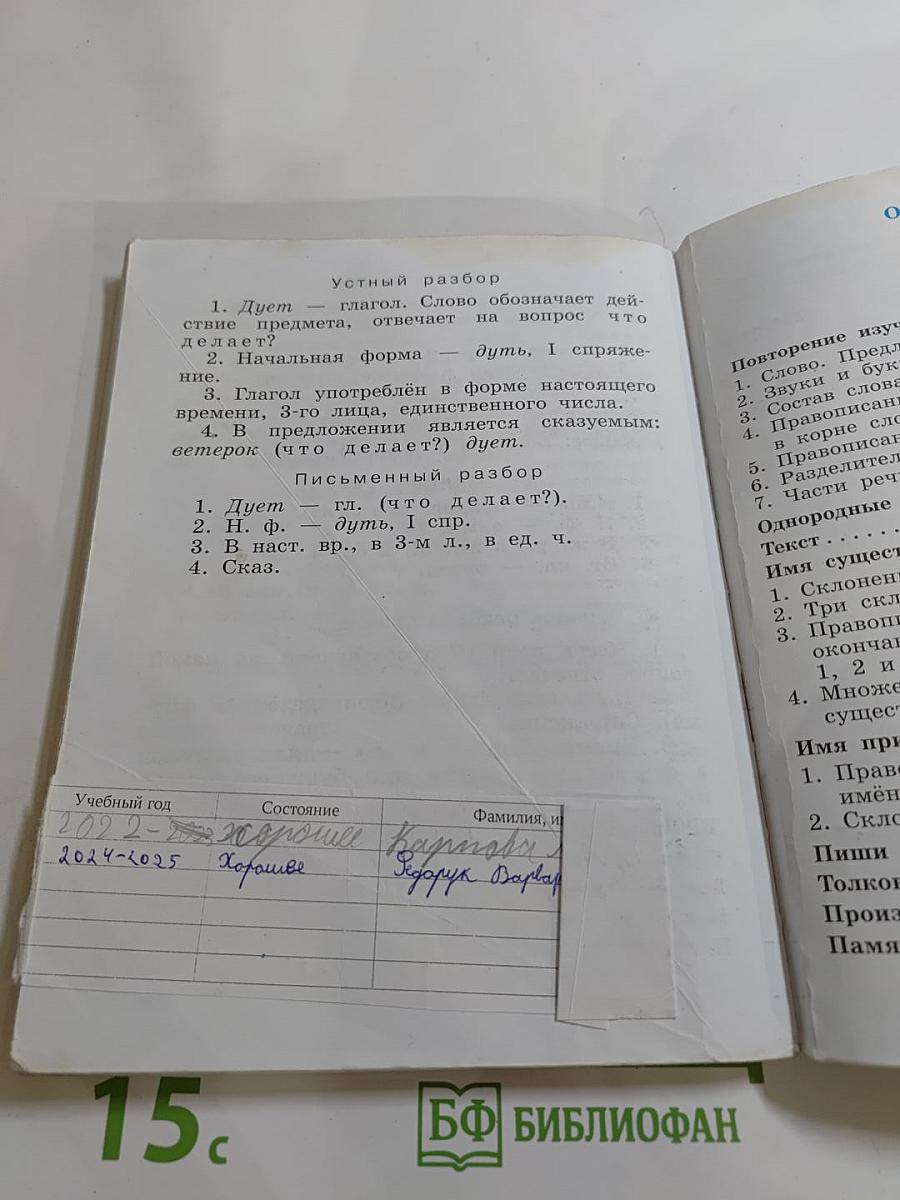 Устный разбор
1. Дует — глагол. Слово обозначает дей-
ствие предмета, отвечает на вопрос что
делает?
2. Начальная форма — дуть, I спряже-
ние.
3. Глагол употреблён в форме настоящего
времени, 3-го лица, единственного числа.
4. В предложении является сказуемым:
ветерок (что делает?) дует.
Письменный разбор
1. Дует — гл. (что делает?).
2. Н. ф. — дуть, I спр.
3. В наст. вр., в 3-м л., в ед. ч.
4. Сказ.
Учебный год Состояние Фамилия, и
2022- хорошее Карпова
2024-2025 Хорошее Федорук Варвар
О
Повторение изуч
1. Слово. Предл
2. Звуки и бук
3. Состав слова
4. Правописан
в корне сло
5. Правописан
6. Разделител
7. Части реч
Однородные
Текст . . . . .
Имя сущест
1. Склонен
2. Три скл
3. Правопи
окончан
1, 2 и
4. Множе
сущест
Имя при
1. Право
имён
2. Скло
Пиши
Толков
Произ
Памя
15с
БФ БИБЛИОФАН